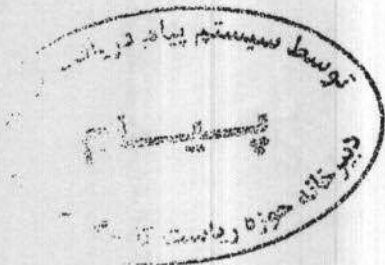 توسط سیستم پیام دریافت
پیام
دبیرخانه حوزه ریاست